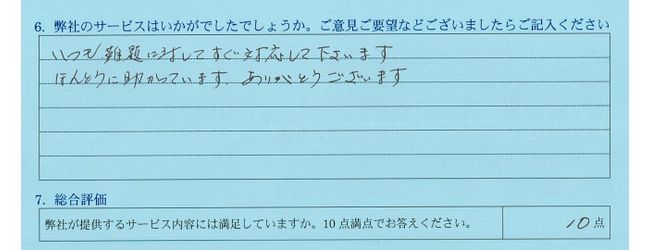 6. 弊社のサービスはいかがでしたでしょうか。ご意見ご要望などございましたらご記入ください
いつも難題に対してすぐ対応して下さいます
ほんとうに助かっています。ありがとうございます
7. 総合評価
弊社が提供するサービス内容には満足していますか。10点満点でお答えください。 10点